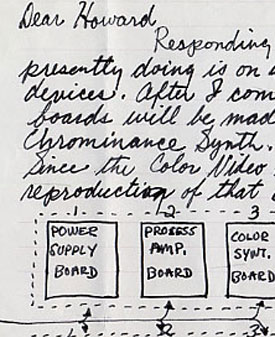 Dear Howard
Responding
presently doing is on
devices. After I com
boards will be mad
Chrominance Synth.
Since the Color Video
reproduction of that
1 2 3
POWER SUPPLY BOARD
PROSESS AMP. BOARD
COLOR SYNT. BOARD
1 2 3